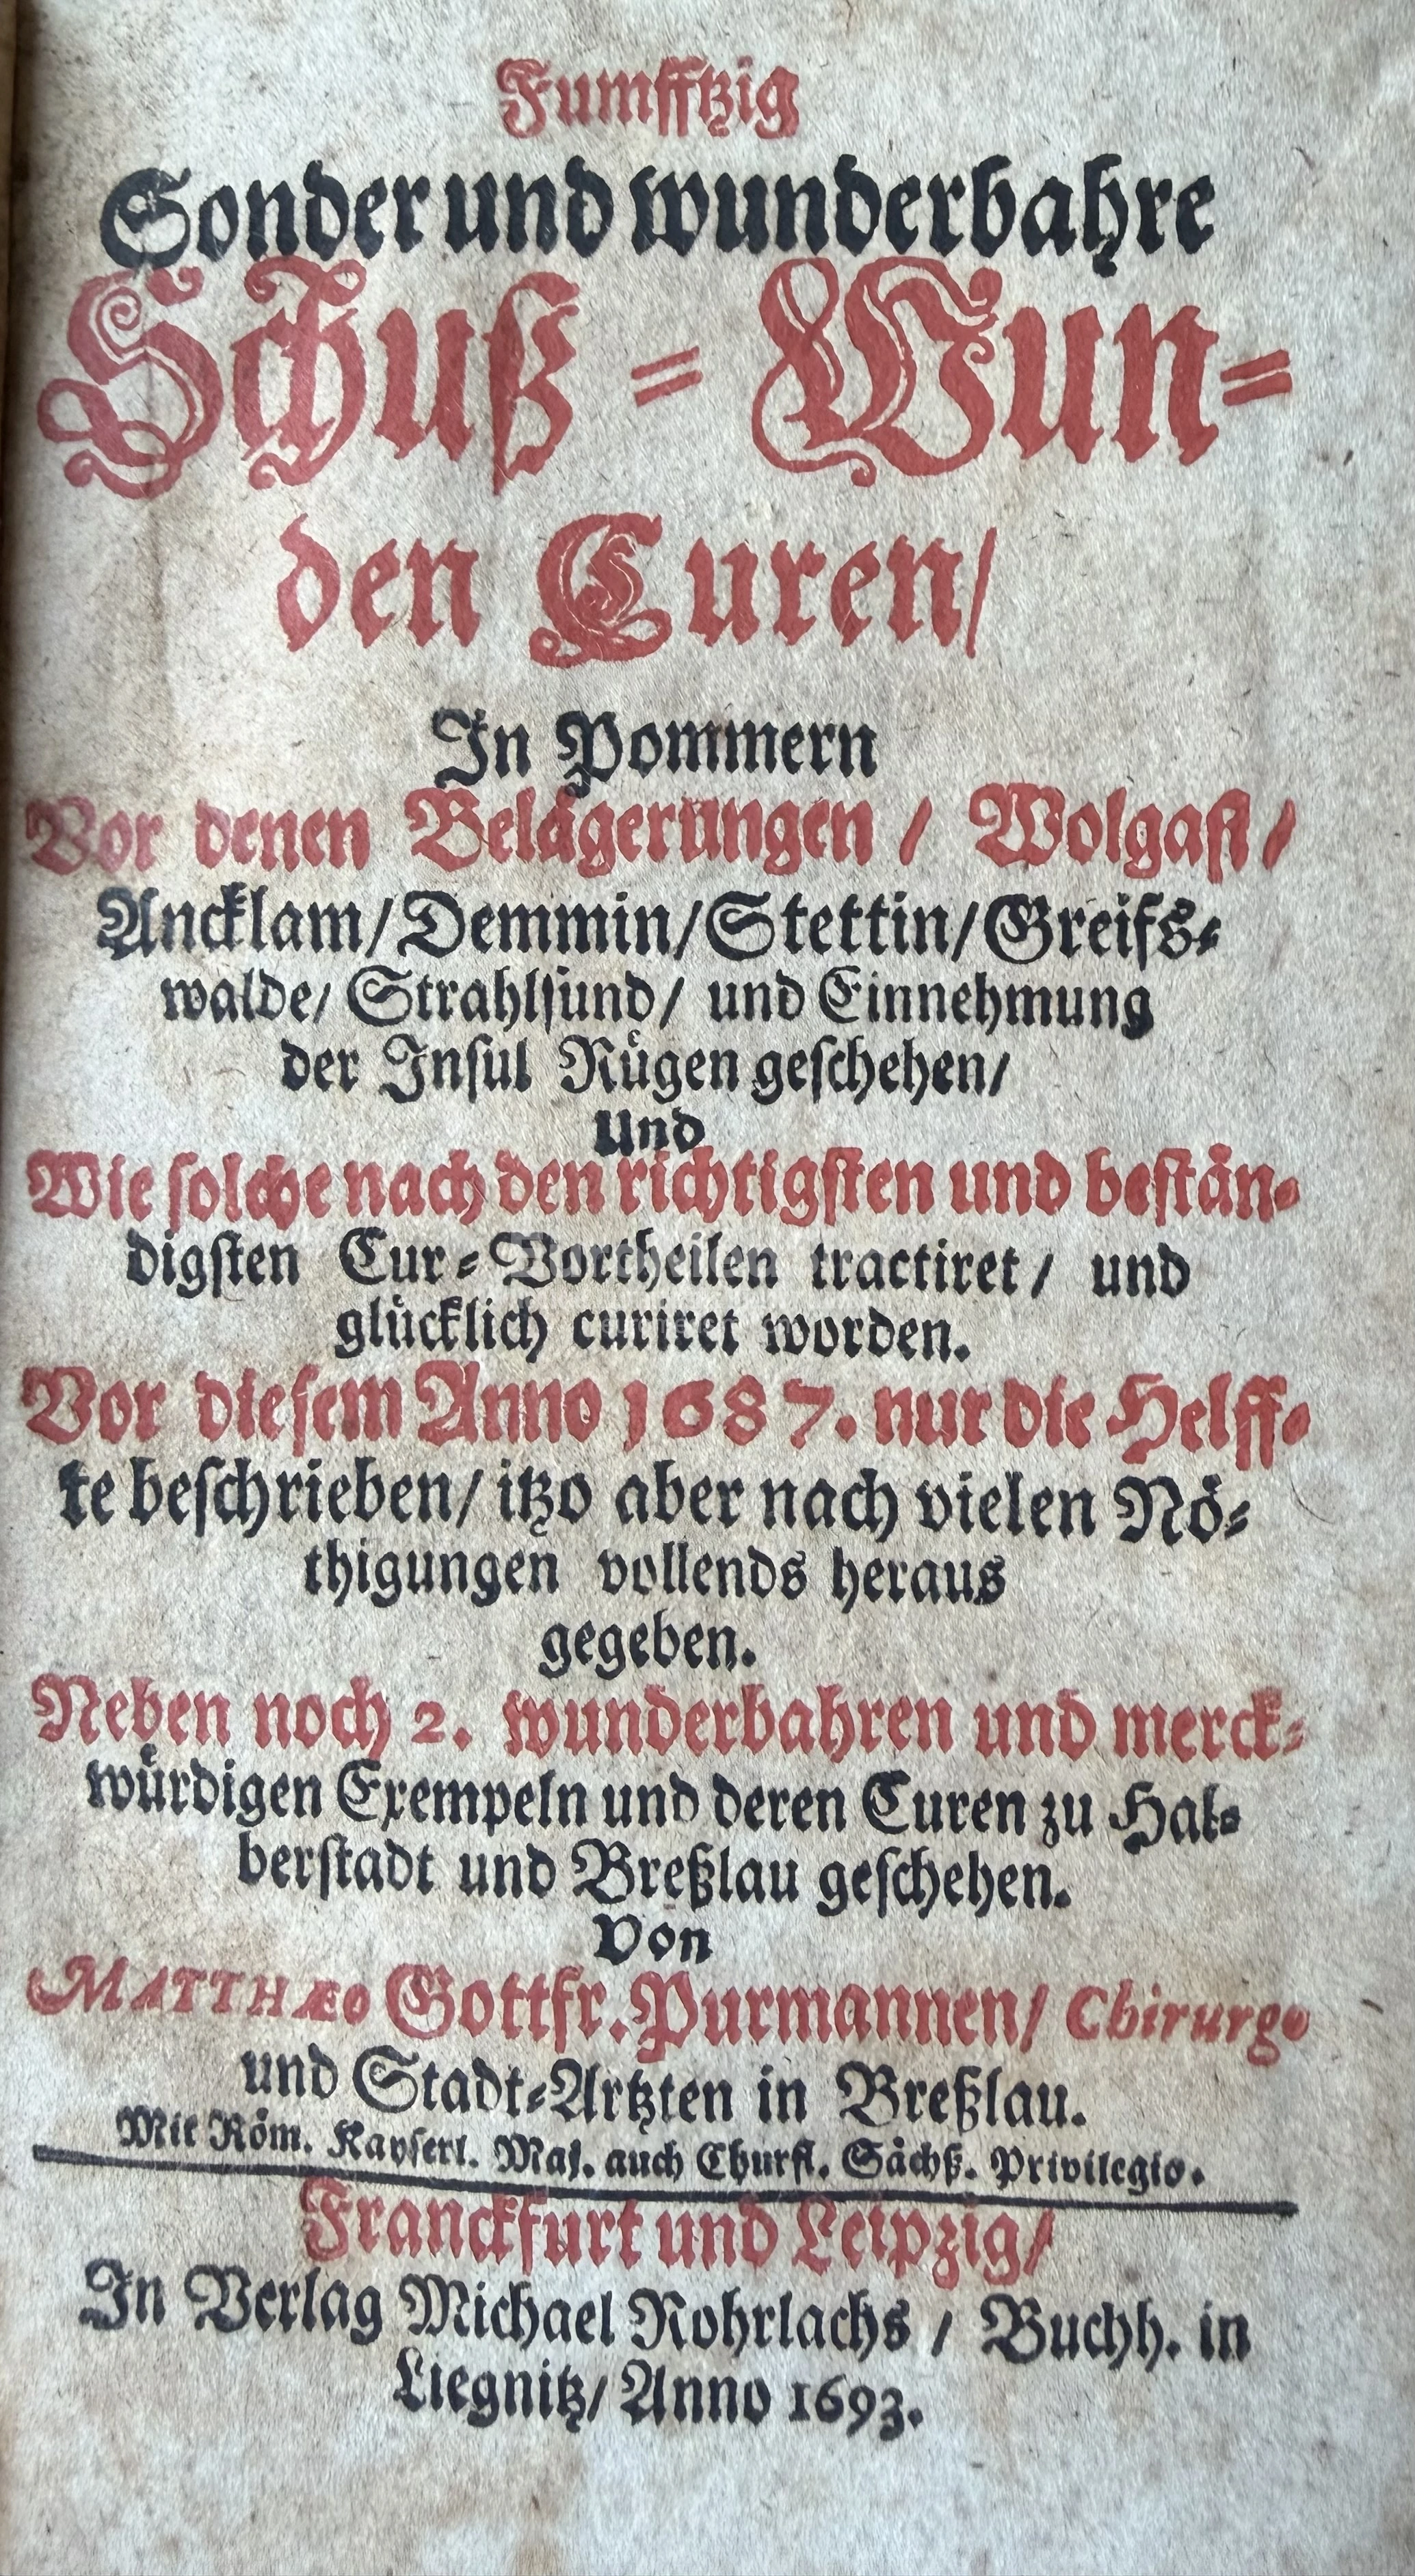 Fumfftzig
Sonder und wunderbahre
Schuß = Wun=
den Curen/
In Pommern
Vor denen Belägerungen / Wolgast /
Ancklam/ Demmin/ Stettin/ Greifs=
walde/ Strahlsund/ und Einnehmung
der Insul Rügen geschehen/
Und
Wie solche nach den richtigsten und bestän=
digsten Cur = Vortheilen tractiret / und
glücklich curiret worden.
Vor diesem Anno 1687. nur die Helff=
te beschrieben/ itzo aber nach vielen Nö=
thigungen vollends heraus
gegeben.
Neben noch 2. wunderbahren und merck=
würdigen Exempeln und deren Curen zu Hal=
berstadt und Breßlau geschehen.
Von
MATTHÆO Gottfr. Purmannen/ Chirurgo
und Stadt=Artzten in Breßlau.
Mit Röm. Kayserl. Maj. auch Churfl. Sächß. Privilegio.
Franckfurt und Leipzig/
In Verlag Michael Rohrlachs / Buchh. in
Liegnitz/ Anno 1693.